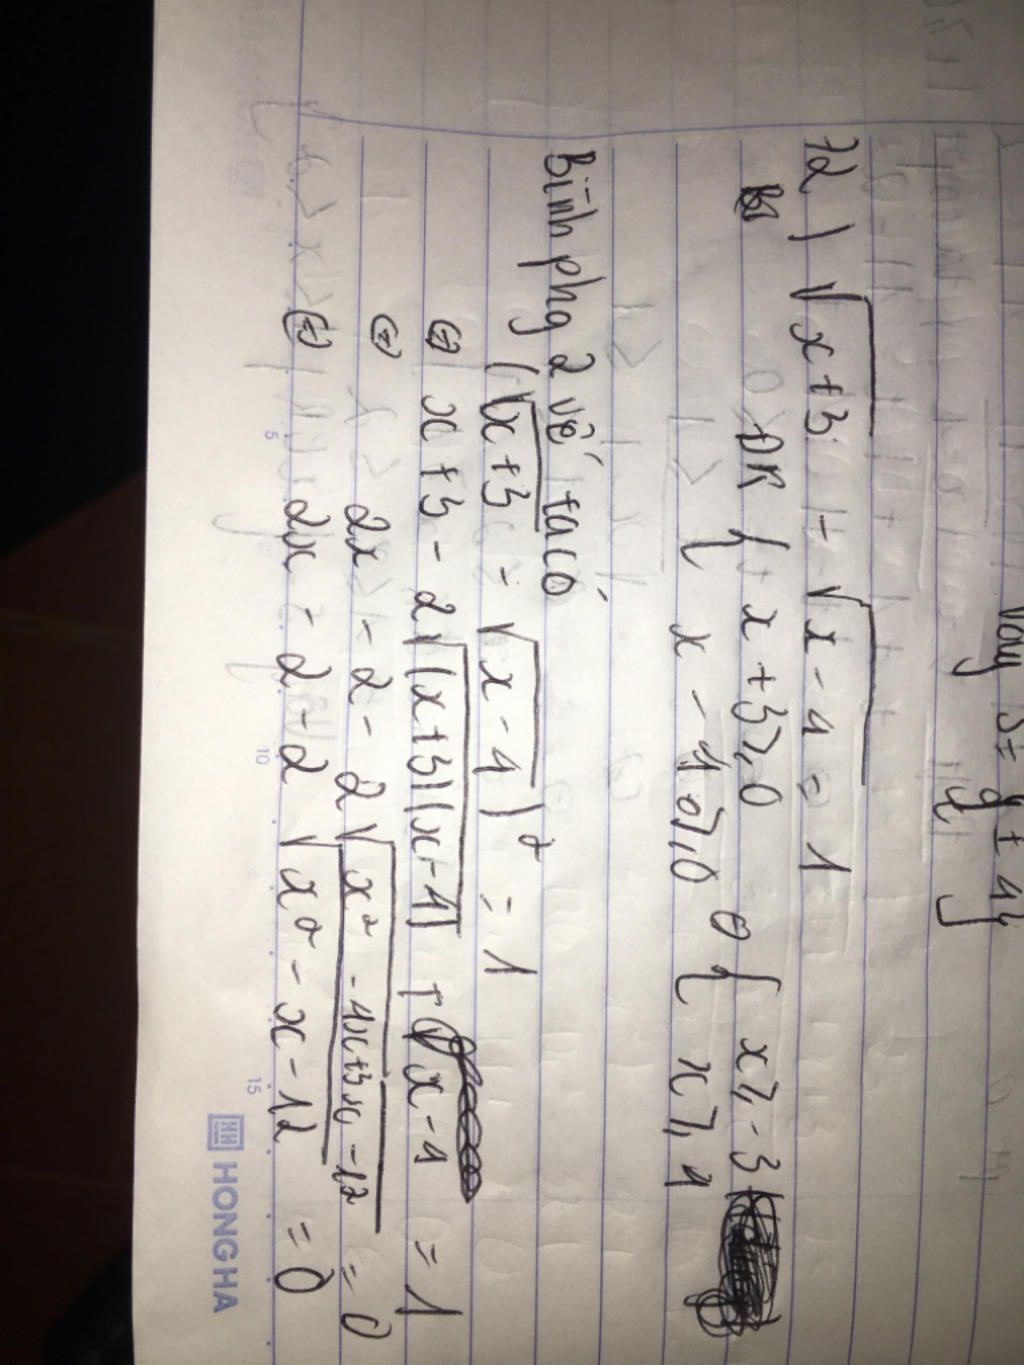 Vậy S = { ± 4}
72) √x+3 - √x-4 = 1
ĐK { x+3 ≥ 0 { x ≥ -3
{ x - 4 ≥ 0 { x ≥ 4
Bình phg 2 vế ta có
(√x+3 - √x-4)² = 1
⇔ x+3 - 2√(x+3)(x-4) + x-4 = 1
⇔ 2x - 2 - 2√x² - 4x+3x - 12 = 0
⇔ 2x - 2 - 2√x² - x - 12 = 0
5 10 15
HONG HA